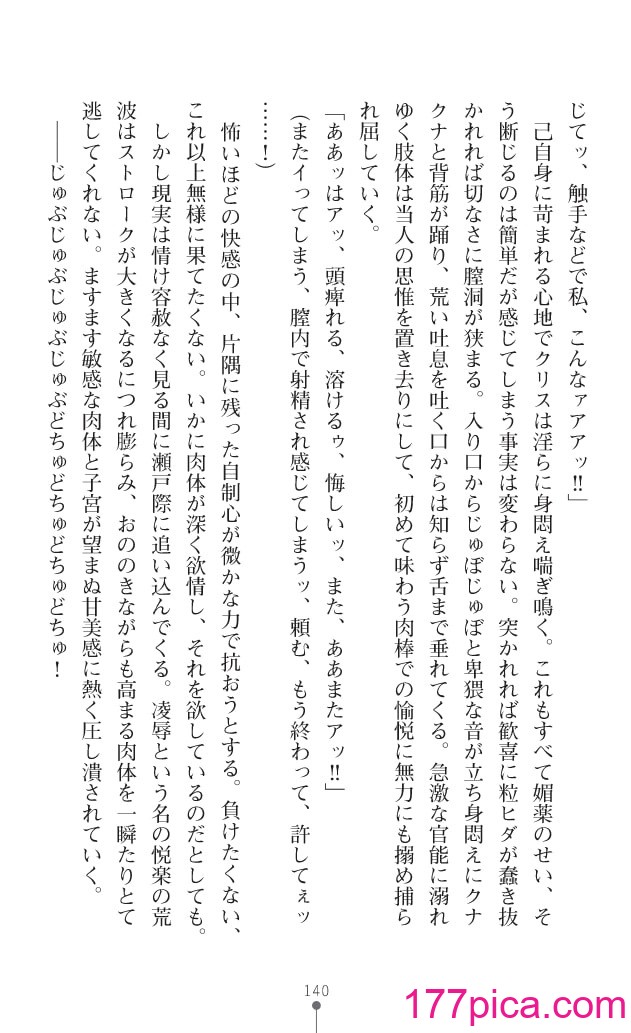 じてッ、触手などで私、こんなァアアッ!!」
己自身に苛まれる心地でクリスは淫らに身悶え喘ぎ鳴く。これもすべて媚薬のせい、そ
う断じるのは簡単だが感じてしまう事実は変わらない。突かれれば歓喜に粒ヒダが蠢き抜
かれれば切なさに膣洞が狭まる。入り口からじゅぼじゅぼと卑猥な音が立ち身悶えにクナ
クナと背筋が踊り、荒い吐息を吐く口からは知らず舌まで垂れてくる。急激な官能に溺れ
ゆく肢体は当人の思惟を置き去りにして、初めて味わう肉棒での愉悦に無力にも搦め捕ら
れ屈していく。
「ああッはアッ、頭痺れる、溶けるゥ、悔しいッ、また、ああまたアッ!!」
(またイってしまう、膣内で射精され感じてしまうッ、頼む、もう終わって、許してぇッ
……!)
怖いほどの快感の中、片隅に残った自制心が微かな力で抗おうとする。負けたくない、
これ以上無様に果てたくない。いかに肉体が深く欲情し、それを欲しているのだとしても。
しかし現実は情け容赦なく見る間に瀬戸際に追い込んでくる。凌辱という名の悦楽の荒
波はストロークが大きくなるにつれ膨らみ、おののきながらも高まる肉体を一瞬たりとて
逃してくれない。ますます敏感な肉体と子宮が望まぬ甘美感に熱く圧し潰されていく。
――じゅぶじゅぶじゅぶじゅぶどちゅどちゅどちゅどちゅ!
140
177pica.com